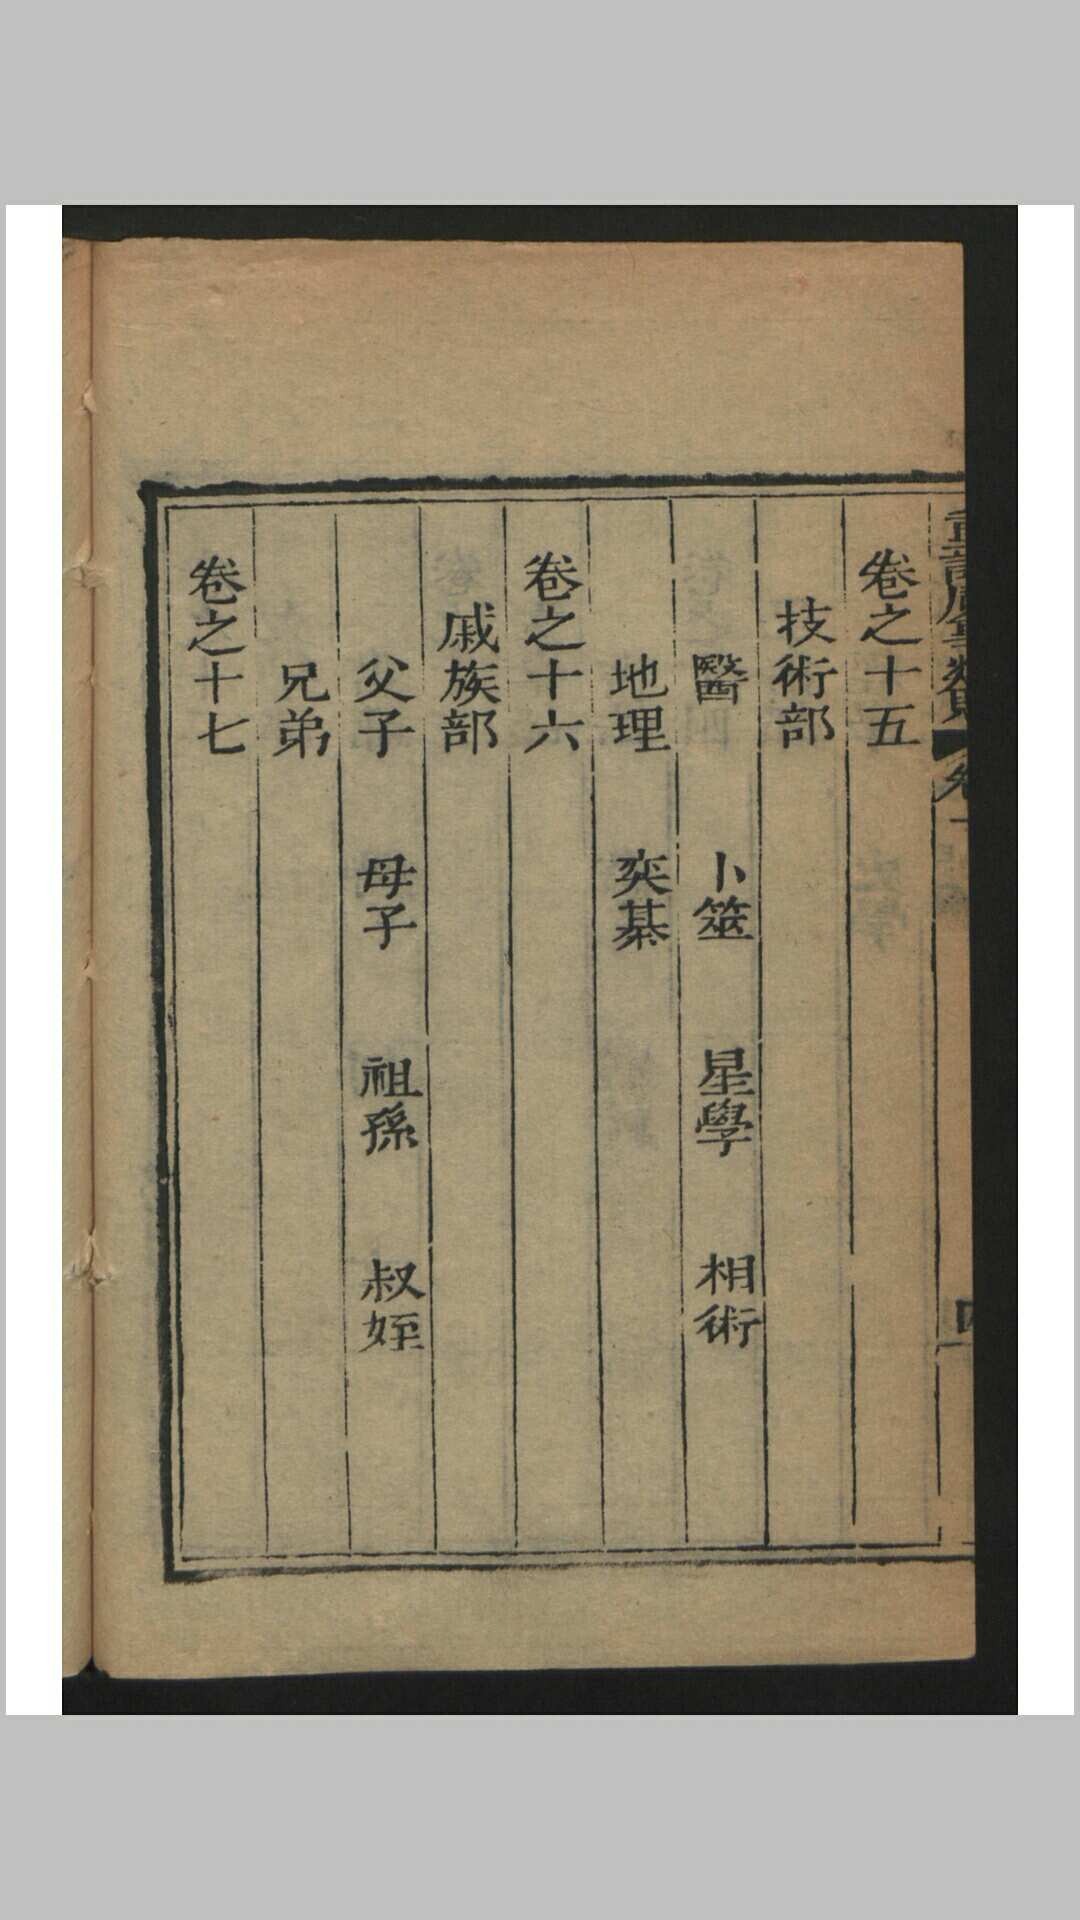 卷之十五
技術部
醫　卜筮　星學　相術
地理　奕棊
卷之十六
戚族部
父子　母子　祖孫　叔姪
兄弟
卷之十七